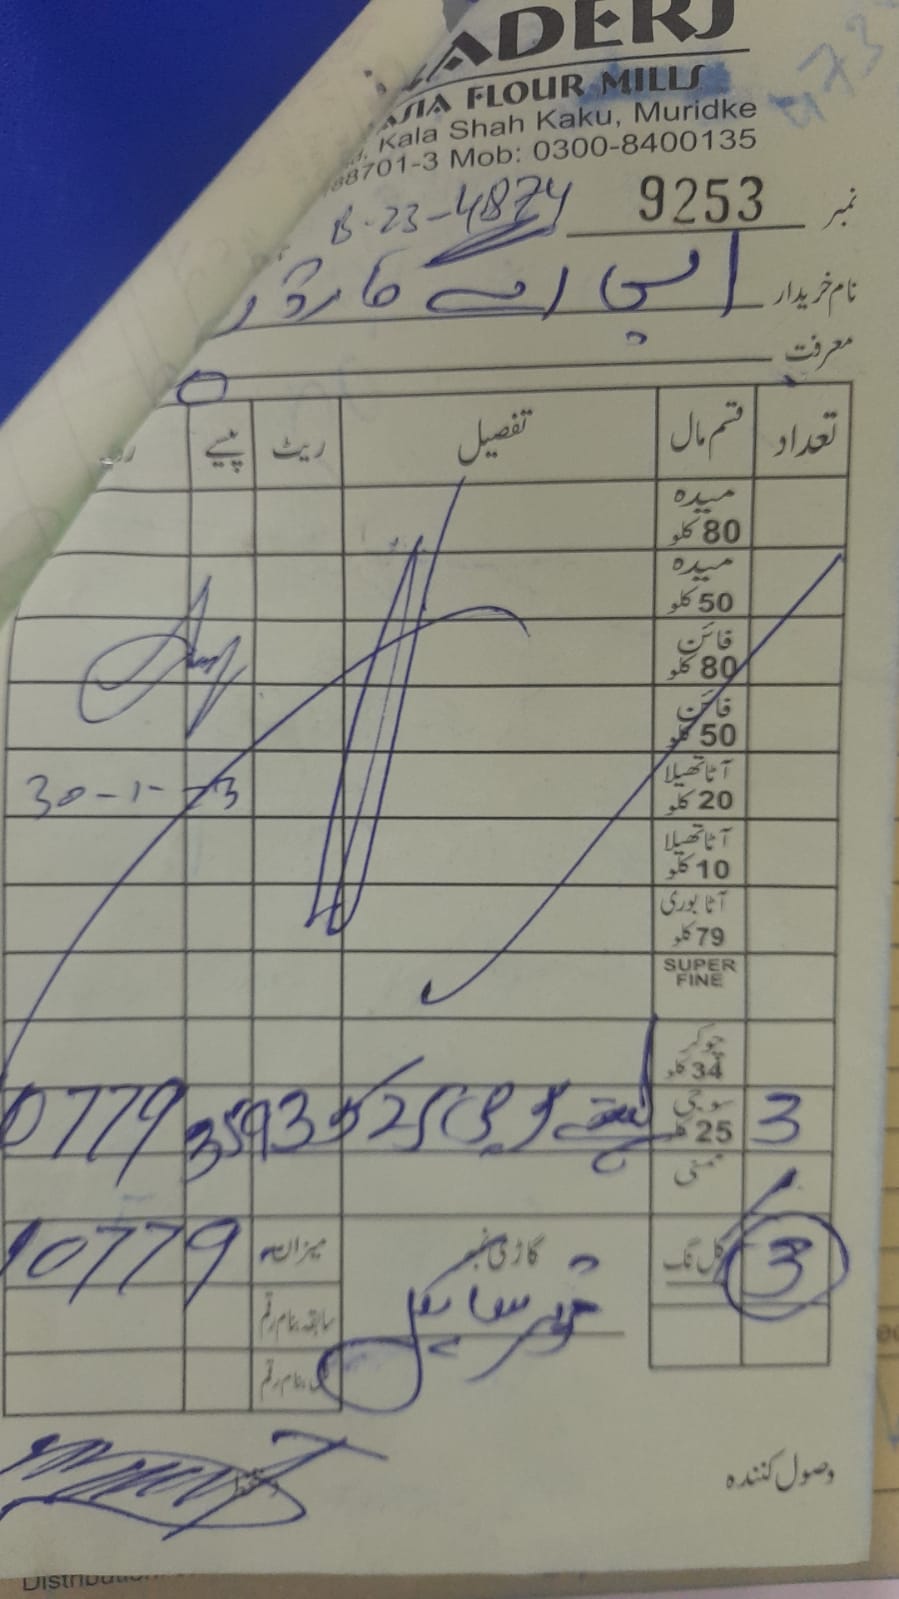 ADERS
ASIA FLOUR MILLS
Kala Shah Kaku, Muridke
88701-3 Mob: 0300-8400135
نمبر 9253
B-23-4874
نام خریدار ایس اے
معرفت
تعداد قسم مال تفصیل ریٹ پیسے
میدہ 80 کلو
میدہ 50 کلو
فائن 80 کلو
فائن 50 کلو
آٹا تھیلا 20 کلو
30-1-23
آٹا تھیلا 10 کلو
آٹا بوری 79 کلو
SUPER FINE
چوکر 34 کلو
3 سوجی 25 کلو 25 3593 0779
ممنی
3 کل نگ گاڑی نمبر میزان 10779
سابقہ بنام رقم
بنام رقم
وصول کنندہ